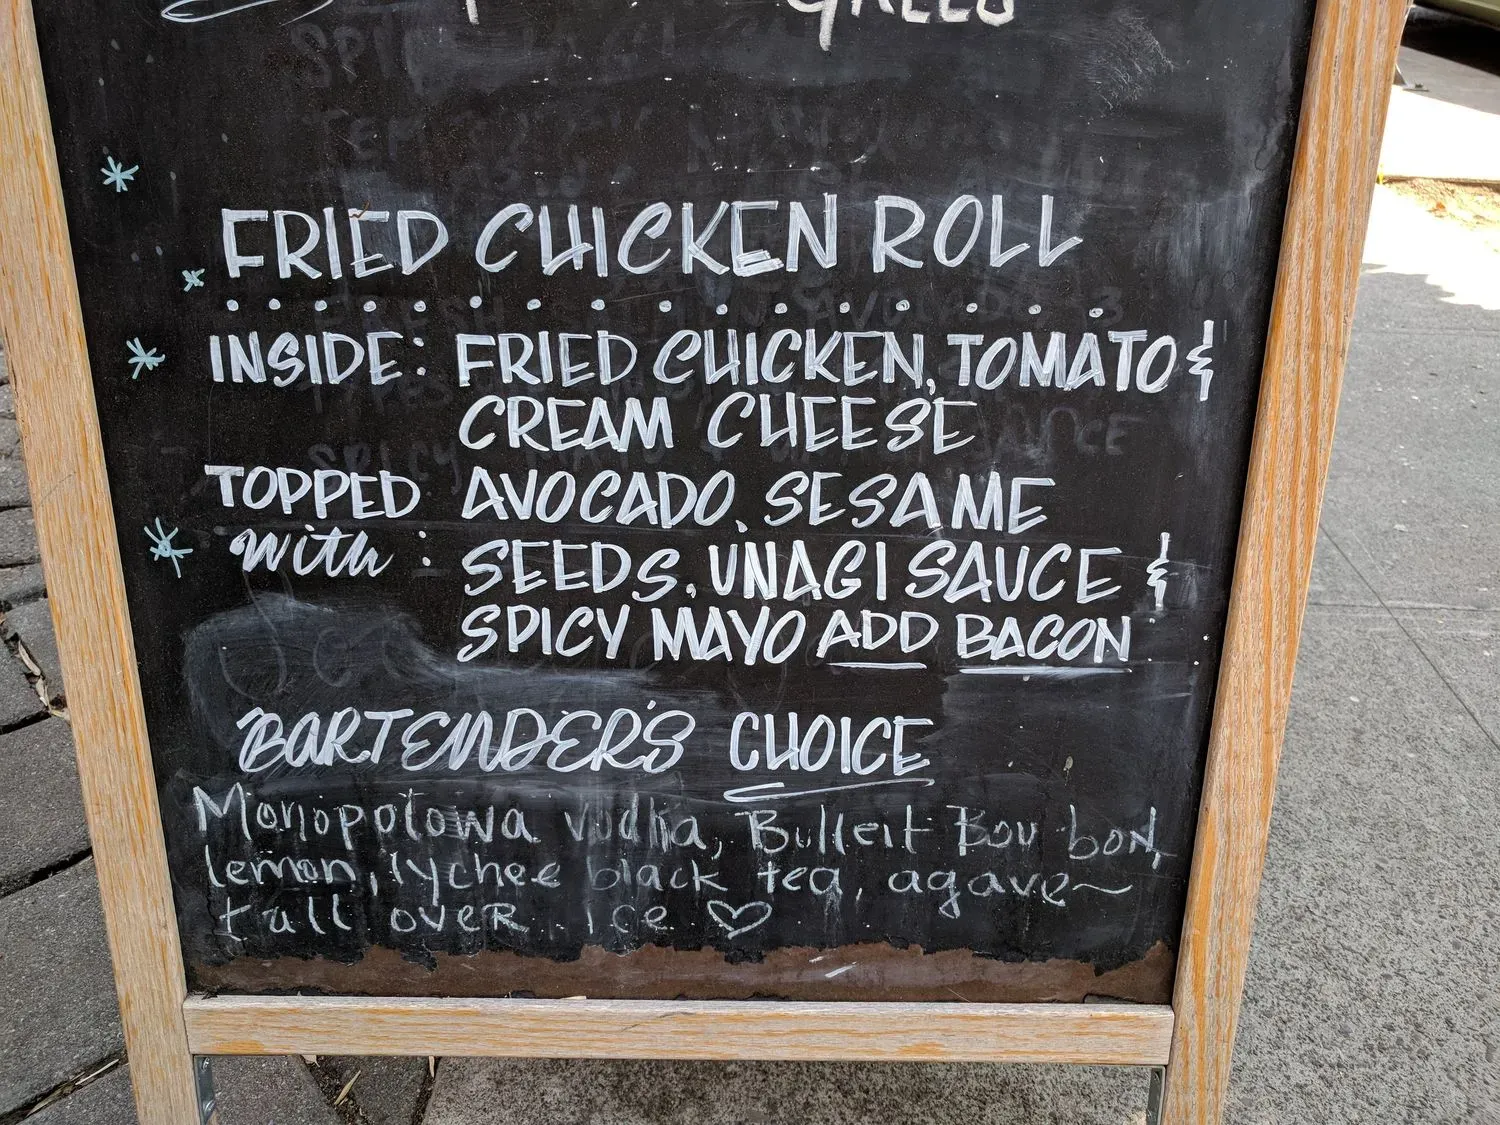 FRIED CHICKEN ROLL
INSIDE: FRIED CHICKEN, TOMATO &
CREAM CHEESE
TOPPED AVOCADO, SESAME
with: SEEDS, UNAGI SAUCE &
SPICY MAYO ADD BACON
BARTENDER'S CHOICE
Monopolowa vodka, Bulleit Bourbon,
lemon, lychee black tea, agave~
tall over ice ♡